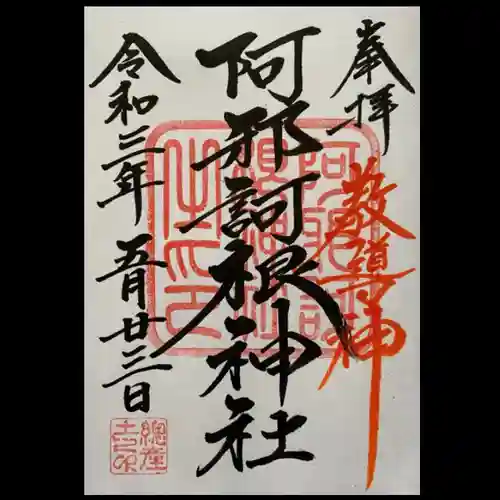 奉拝
教導神
阿邪訶根神社
令和三年 五月廿三日